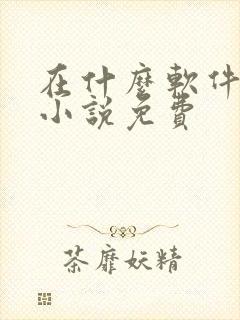 在什麼軟件
小說免費
茶靡妖精